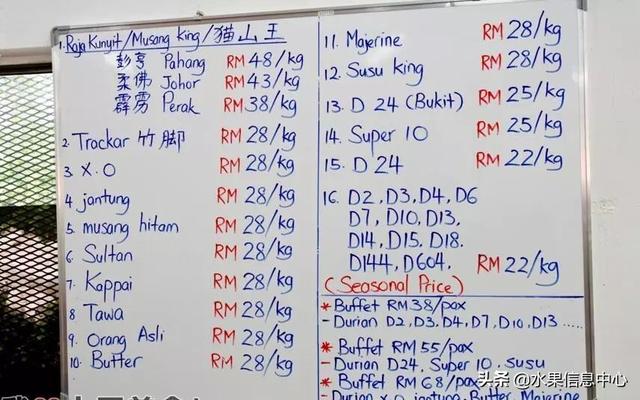 1. Raja Kunyit/Musang king/猫山王
彭亨 Pahang RM 48/kg
柔佛 Johor RM 43/kg
霹雳 Perak RM 38/kg
2. Trackar 竹脚 RM 28/kg
3 X.O RM 28/kg
4 jantung RM 28/kg
5. musang hitam RM 28/kg
6. Sultan RM 28/kg
7. Kappai RM 28/kg
8 Tawa RM 28/kg
9. Orang Asli RM 28/kg
10. Butter RM 28/kg
11. Majerine RM 28/kg
12. Susu king RM 28/kg
13. D 24 (Bukit) RM 25/kg
14. Super 10 RM 25/kg
15. D 24 RM 22/kg
16. D2, D3, D4, D6
D7, D10, D13,
D14, D15, D18.
D144, D604. RM 22/kg
(Seasonal Price)
* Buffet RM 38/pax
- Durian D2, D3, D4, D7, D10, D13 .....
* Buffet RM 55/pax
- Durian D24, Super 10, susu
* Buffet RM 68/pax
- Durian x.o, jantung, Butter, Majerine
头条 @水果信息中心